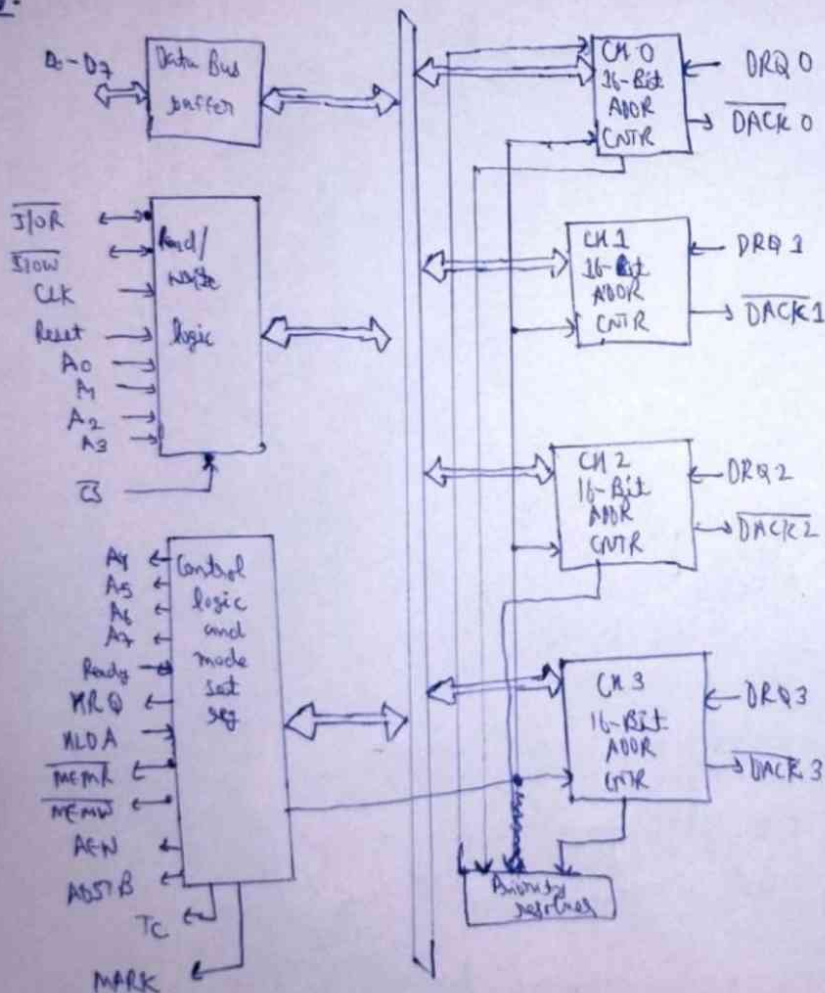 D0-D7
Data Bus
buffer
I/OR
I/OW
CLK
Reset
A0
A1
A2
A3
CS
Read/
write
logic
A4
A5
A6
A7
Ready
HRQ
HLDA
MEMR
MEMW
AEN
ADSTB
TC
MARK
Control
logic
and
mode
set
reg
CH 0
16-Bit
ADDR
CNTR
DRQ 0
DACK 0
CH 1
16-Bit
ADDR
CNTR
DRQ 1
DACK 1
CH 2
16-Bit
ADDR
CNTR
DRQ2
DACK2
CH 3
16-Bit
ADDR
CNTR
DRQ3
DACK 3
Priority
resolver